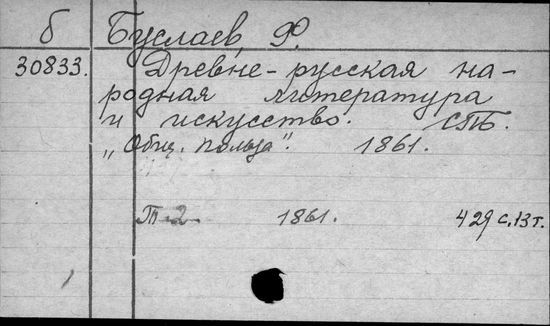 б Буслаев, Ф.
30833. Древне-русская на-
родная литература
и искусство. СПБ.
„Общ. польза". 1861.
Т-2 1861. 429 с. 13 т.